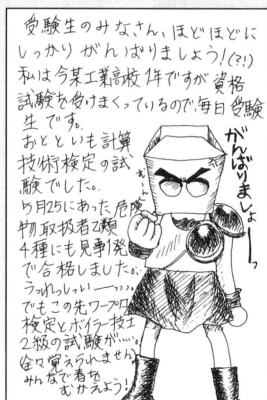 受験生のみなさん、ほどほどに
しっかり がんばりましょう！(?!)
私は今某工業高校1年ですが資格
試験を受けまくっているので毎日受験
生です。
おとといも計算
技術検定の試
験でした。
5月25にあった危険
物取扱者乙類
4種にも見事1発
で合格しました。
うれしい
でもこの先ワープロ
検定とボイラー技士
2級の試験が…。
全々覚えられません
みんなで春を
むかえよう！
がんばりましょーっ